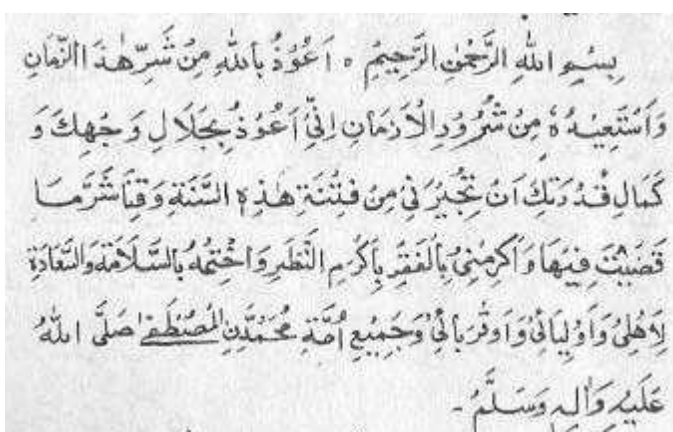 بِسْمِ اللهِ الرَّحْمٰنِ الرَّحِيْمِ ۰ اَعُوْذُ بِاللهِ مِنْ شَرِّ هٰذَا الزَّمَانِ
وَاَسْتَعِيْذُهٗ مِنْ شُرُوْرِ الْاَزْمَانِ اِنِّىْ اَعُوْذُ بِجَلَالِ وَجْهِكَ وَ
كَمَالِ قُدْرَتِكَ اَنْ تُجِيْرَنِىْ مِنْ فِتْنَةِ هٰذِهِ السَّنَةِ وَقِنَا شَرَّمَا
قَضَيْتَ فِيْهَا وَاَكْرِمْنِىْ بِالْفَقْرِ بِاَكْرَمِ النَّظَرِ وَاخْتِمْهُ بِالسَّلَامَةِ وَالسَّعَادَةِ
لِاَهْلِىْ وَاَوْلِيَائِىْ وَاَقْرِبَائِىْ وَجَمِيْعِ اُمَّةِ مُحَمَّدِنِ الْمُصْطَفٰى صَلَّى اللهُ
عَلَيْهِ وَاٰلِهٖ وَسَلَّمَ -